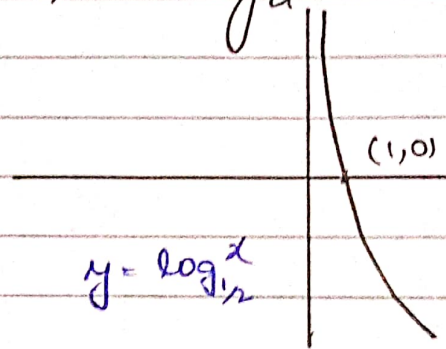 (1,0)
y = log₁/₂ x